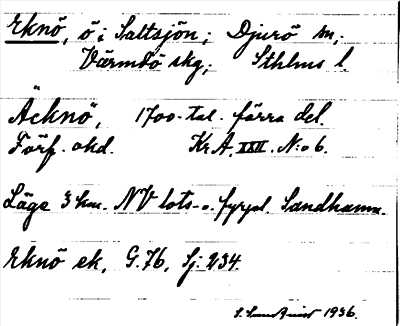 Eknö, ö i Saltsjön; Djurö sn;
Värmdö skg; Sthlms l.
Äcknö, 1700-tal. förra del.
Förf. okd. Kr.A. XXII. N:o 6.
Läge 3 km. NV lots- o. fyrpl. Sandhamn.
Eknö ek, G.76, Sj: 234
S. Sundquist 1936.